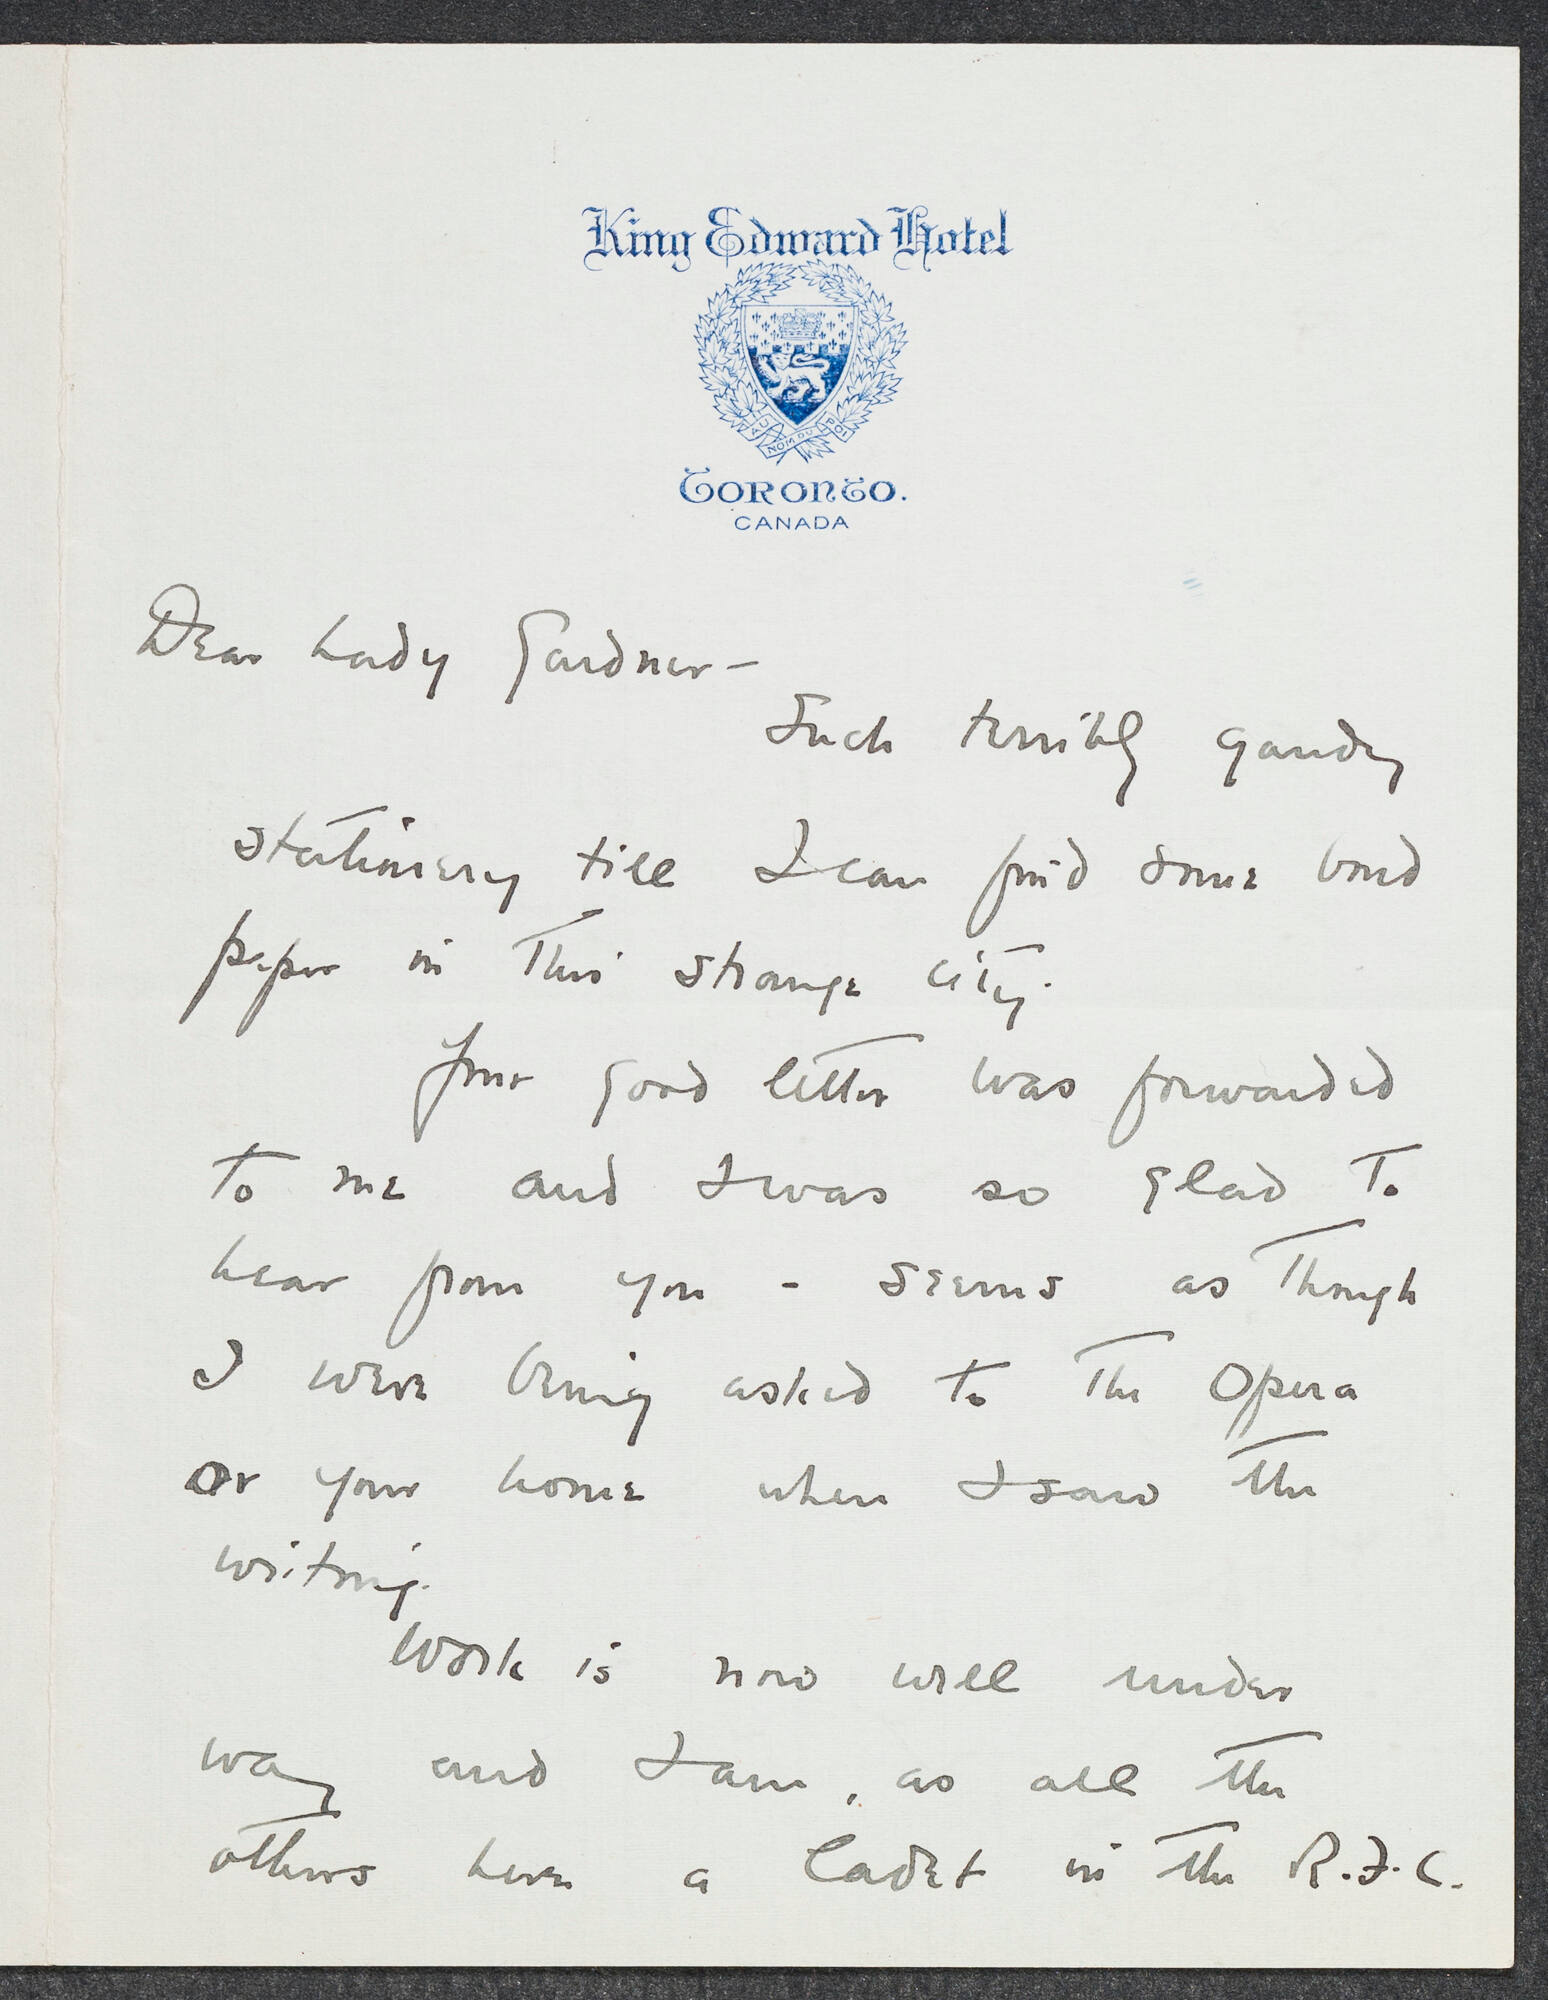 King Edward Hotel
AU NOM DU ROI
TORONTO.
CANADA
Dear Lady Gardner -
Such terribly gaudy
stationery till I can find some bond
paper in this strange city.
Your good letter was forwarded
to me and I was so glad to
hear from you - seems as though
I were being asked to the Opera
or your home when I saw the
writing.
Work is now well under
way and I am, as all the
others here a Cadet in the R.F.C.